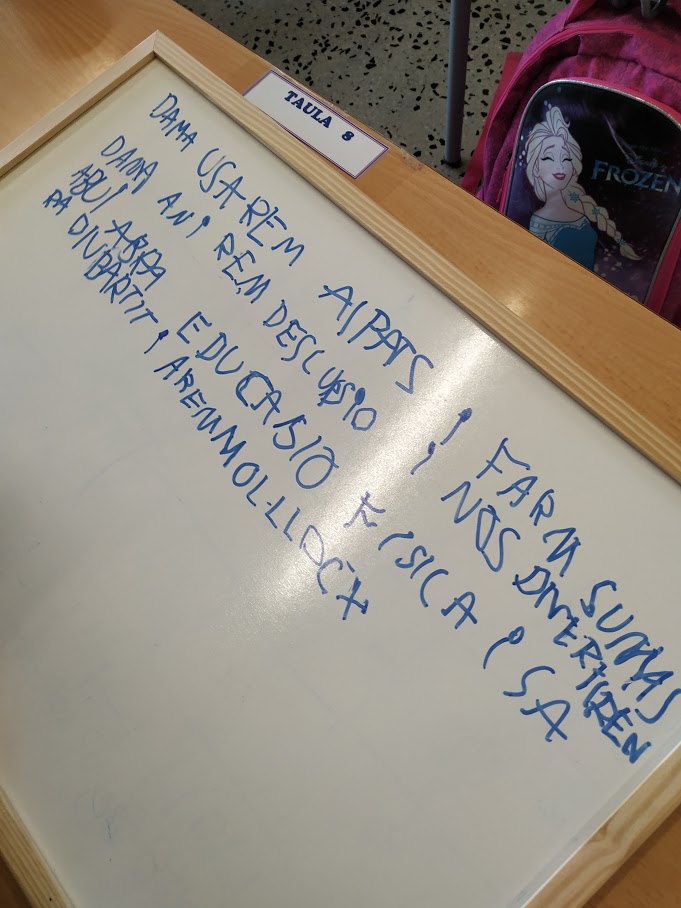 TAULA 8
DAMA USAREM AIPATS i FARM SUMAS
DAMA ANiREM DESCUBSIO i NOS DIVERTIREN
ABUÍ ABRA EDUCABIO FISICA i SA
RA DIVBARTIT i AREMMOL·LLOCX
Disney
FROZEN